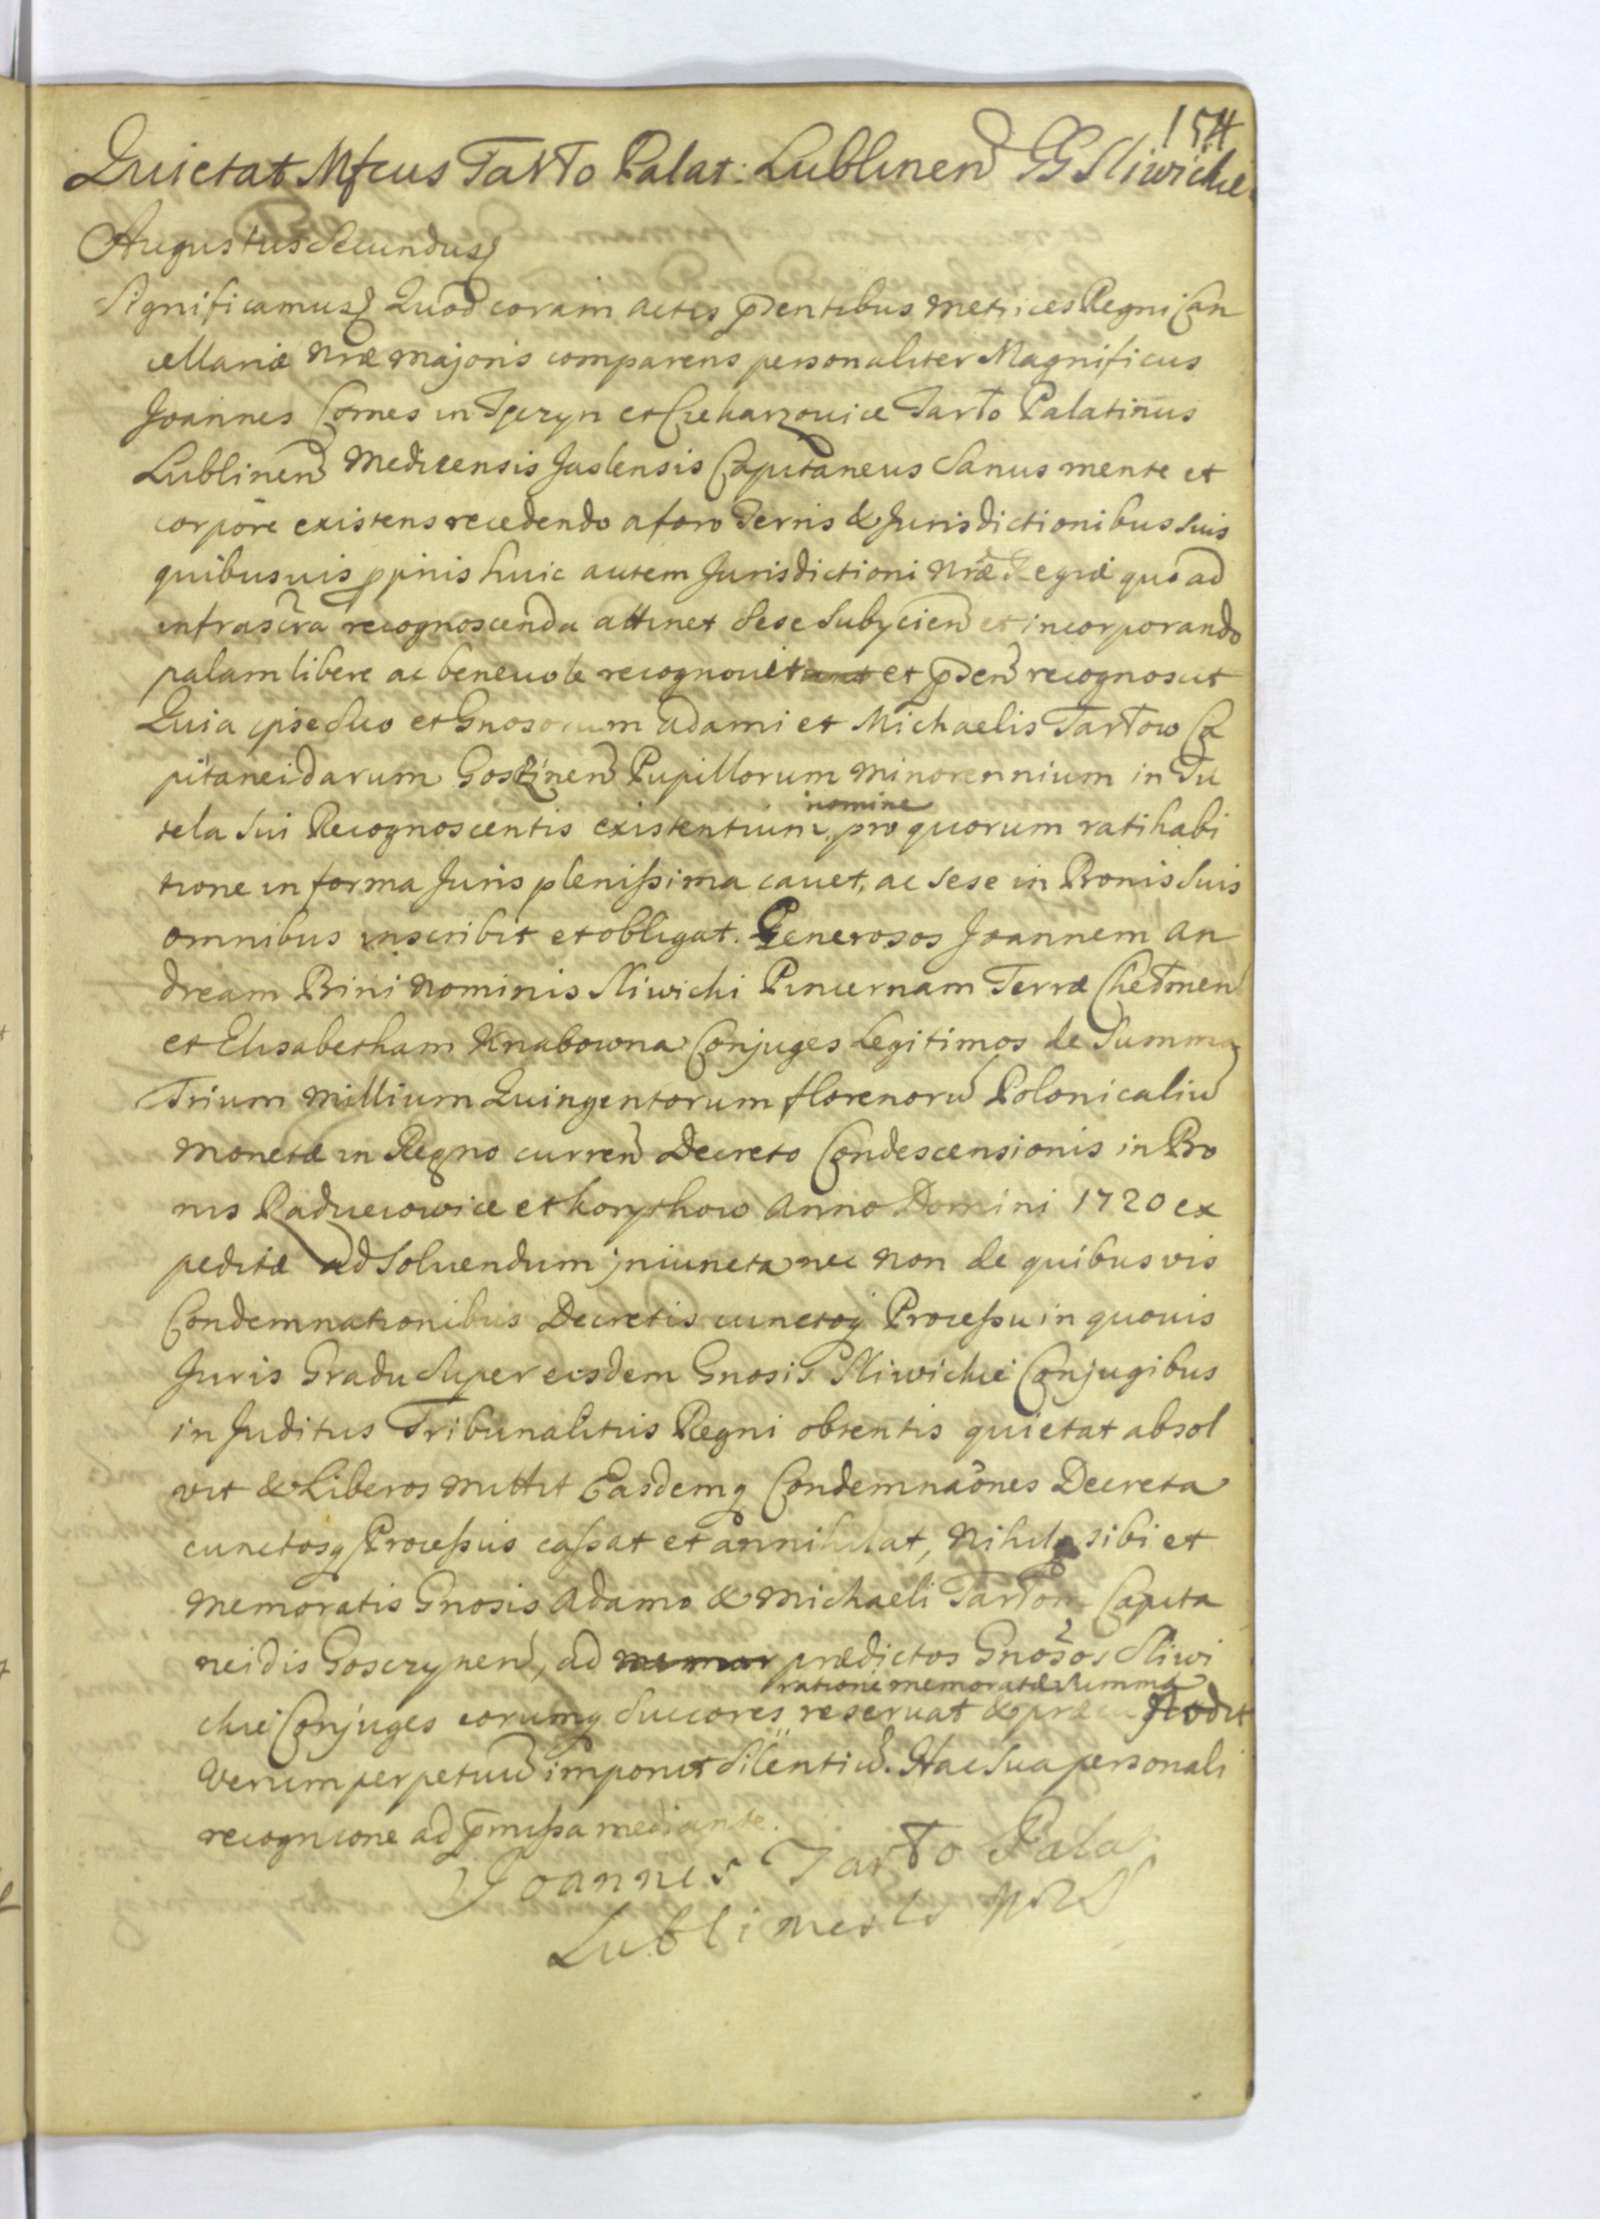 154
Quietat Mfcus Tarło Palat: Lublinen GG Sliwickie
Augustus Secundus
Significamus Quod coram actis pdentibus Metrices Regni Can
cellariæ Nræ Majoris comparens personaliter Magnificus
Joannes Comes in Tęczyn et Czekarzouice Tarło Palatinus
Lublinen Medicensis Jaslensis Capitaneus Sanus mente et
corpore existens recedendo a foro Terris & Jurisdictionibus suis
quibusuis pprijs huic autem Jurisdictioni Nræ Regiæ quo ad
infrascra recognoscenda attinet sese subycien et incorporando
palam libere ac beneuole recognouit et pden recognoscit
Quia ipse suo et Gnosorum Adami et Michaelis Tarłow Ca
pitaneidarum Goszinen Pupillorum Minorennium in Tu
tela sui Recognoscentis existentium, nomine pro quorum ratihabi
tione in forma Juris plenissima cauet, ac sese in Bonis suis
omnibus inscribit et obligat. Generosos Joannem An
dream Bini Nominis Sliwicki Pincernam Terræ Chełmen
et Elisabetham Knabowna Conjuges Legitimos de Summa
Trium Millium Quingentorum florenoru Polonicaliu
Monetæ in Regno curren Decreto Condescensionis in Bo
nis Raducowice et Korythow Anno Domini 1720 ex
peditæ ad soluendum jniuncta nec non de quibusvis
Condemnationibus Decretis cunctoq Processu in quouis
Juris Gradu super eisdem Gnosis Sliwickie Conjugibus
in Juditijs Tribunalitijs Regni obtentis quietat absol
vit & Liberos mittit Easdemq Condemnaones Decreta
cunctosq Processus cassat et annihilat, Nihilq sibi et
memoratis Gnosis Adamo & Michaeli Tarłom Capita
neidis Goscrynen, ad prædictos Gnosos Sliwi
ckie Conjuges eorumq Succores ratione memoratæ Summæ reseruat &
Verum perpetuu imponit silentiu. Hac sua personali
recognicone ad pmissa mediante.
Joannes Tarło Pala
Lubliners